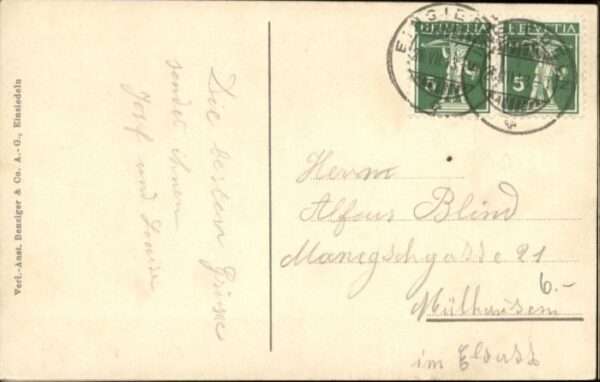 Verl.-Anst. Benziger & Co. A.-G., Einsiedeln
Die besten Grüsse
sendet ihnen
Josef und Louise
HELVETIA
HELVETIA
5
Herrn
Alfons Blind
Manegschgasse 21
6.-
Mülhausen
im Elsass